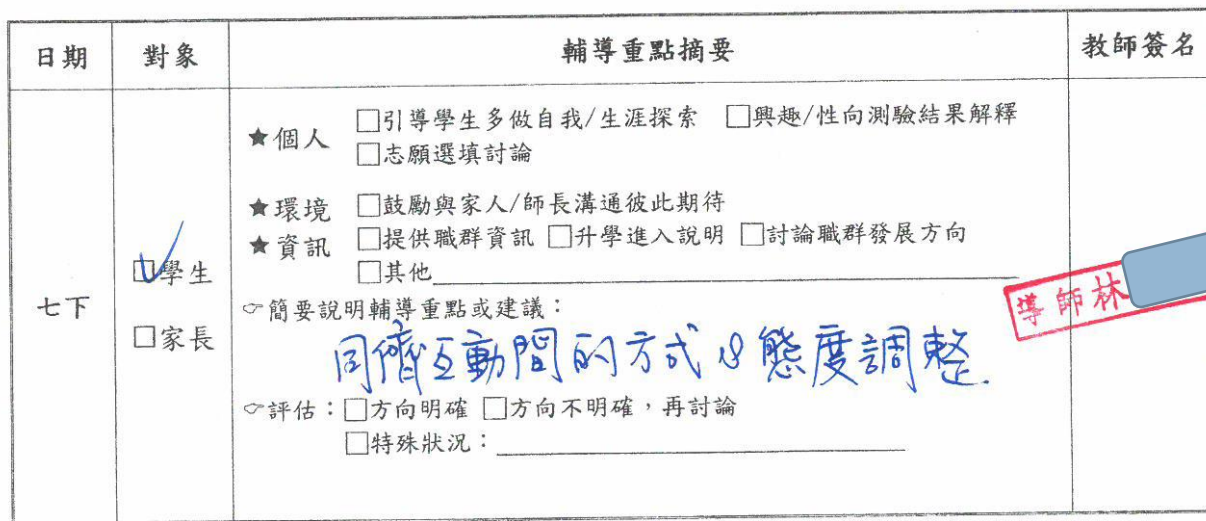 日期 對象 輔導重點摘要 教師簽名
★個人 □引導學生多做自我/生涯探索 □興趣/性向測驗結果解釋
□志願選填討論
★環境 □鼓勵與家人/師長溝通彼此期待
★資訊 □提供職群資訊 □升學進入說明 □討論職群發展方向
□其他
七下
☑學生
□家長
☞簡要說明輔導重點或建議：
同儕互動間的方式&態度調整.
☞評估：□方向明確 □方向不明確，再討論
□特殊狀況：
導師林